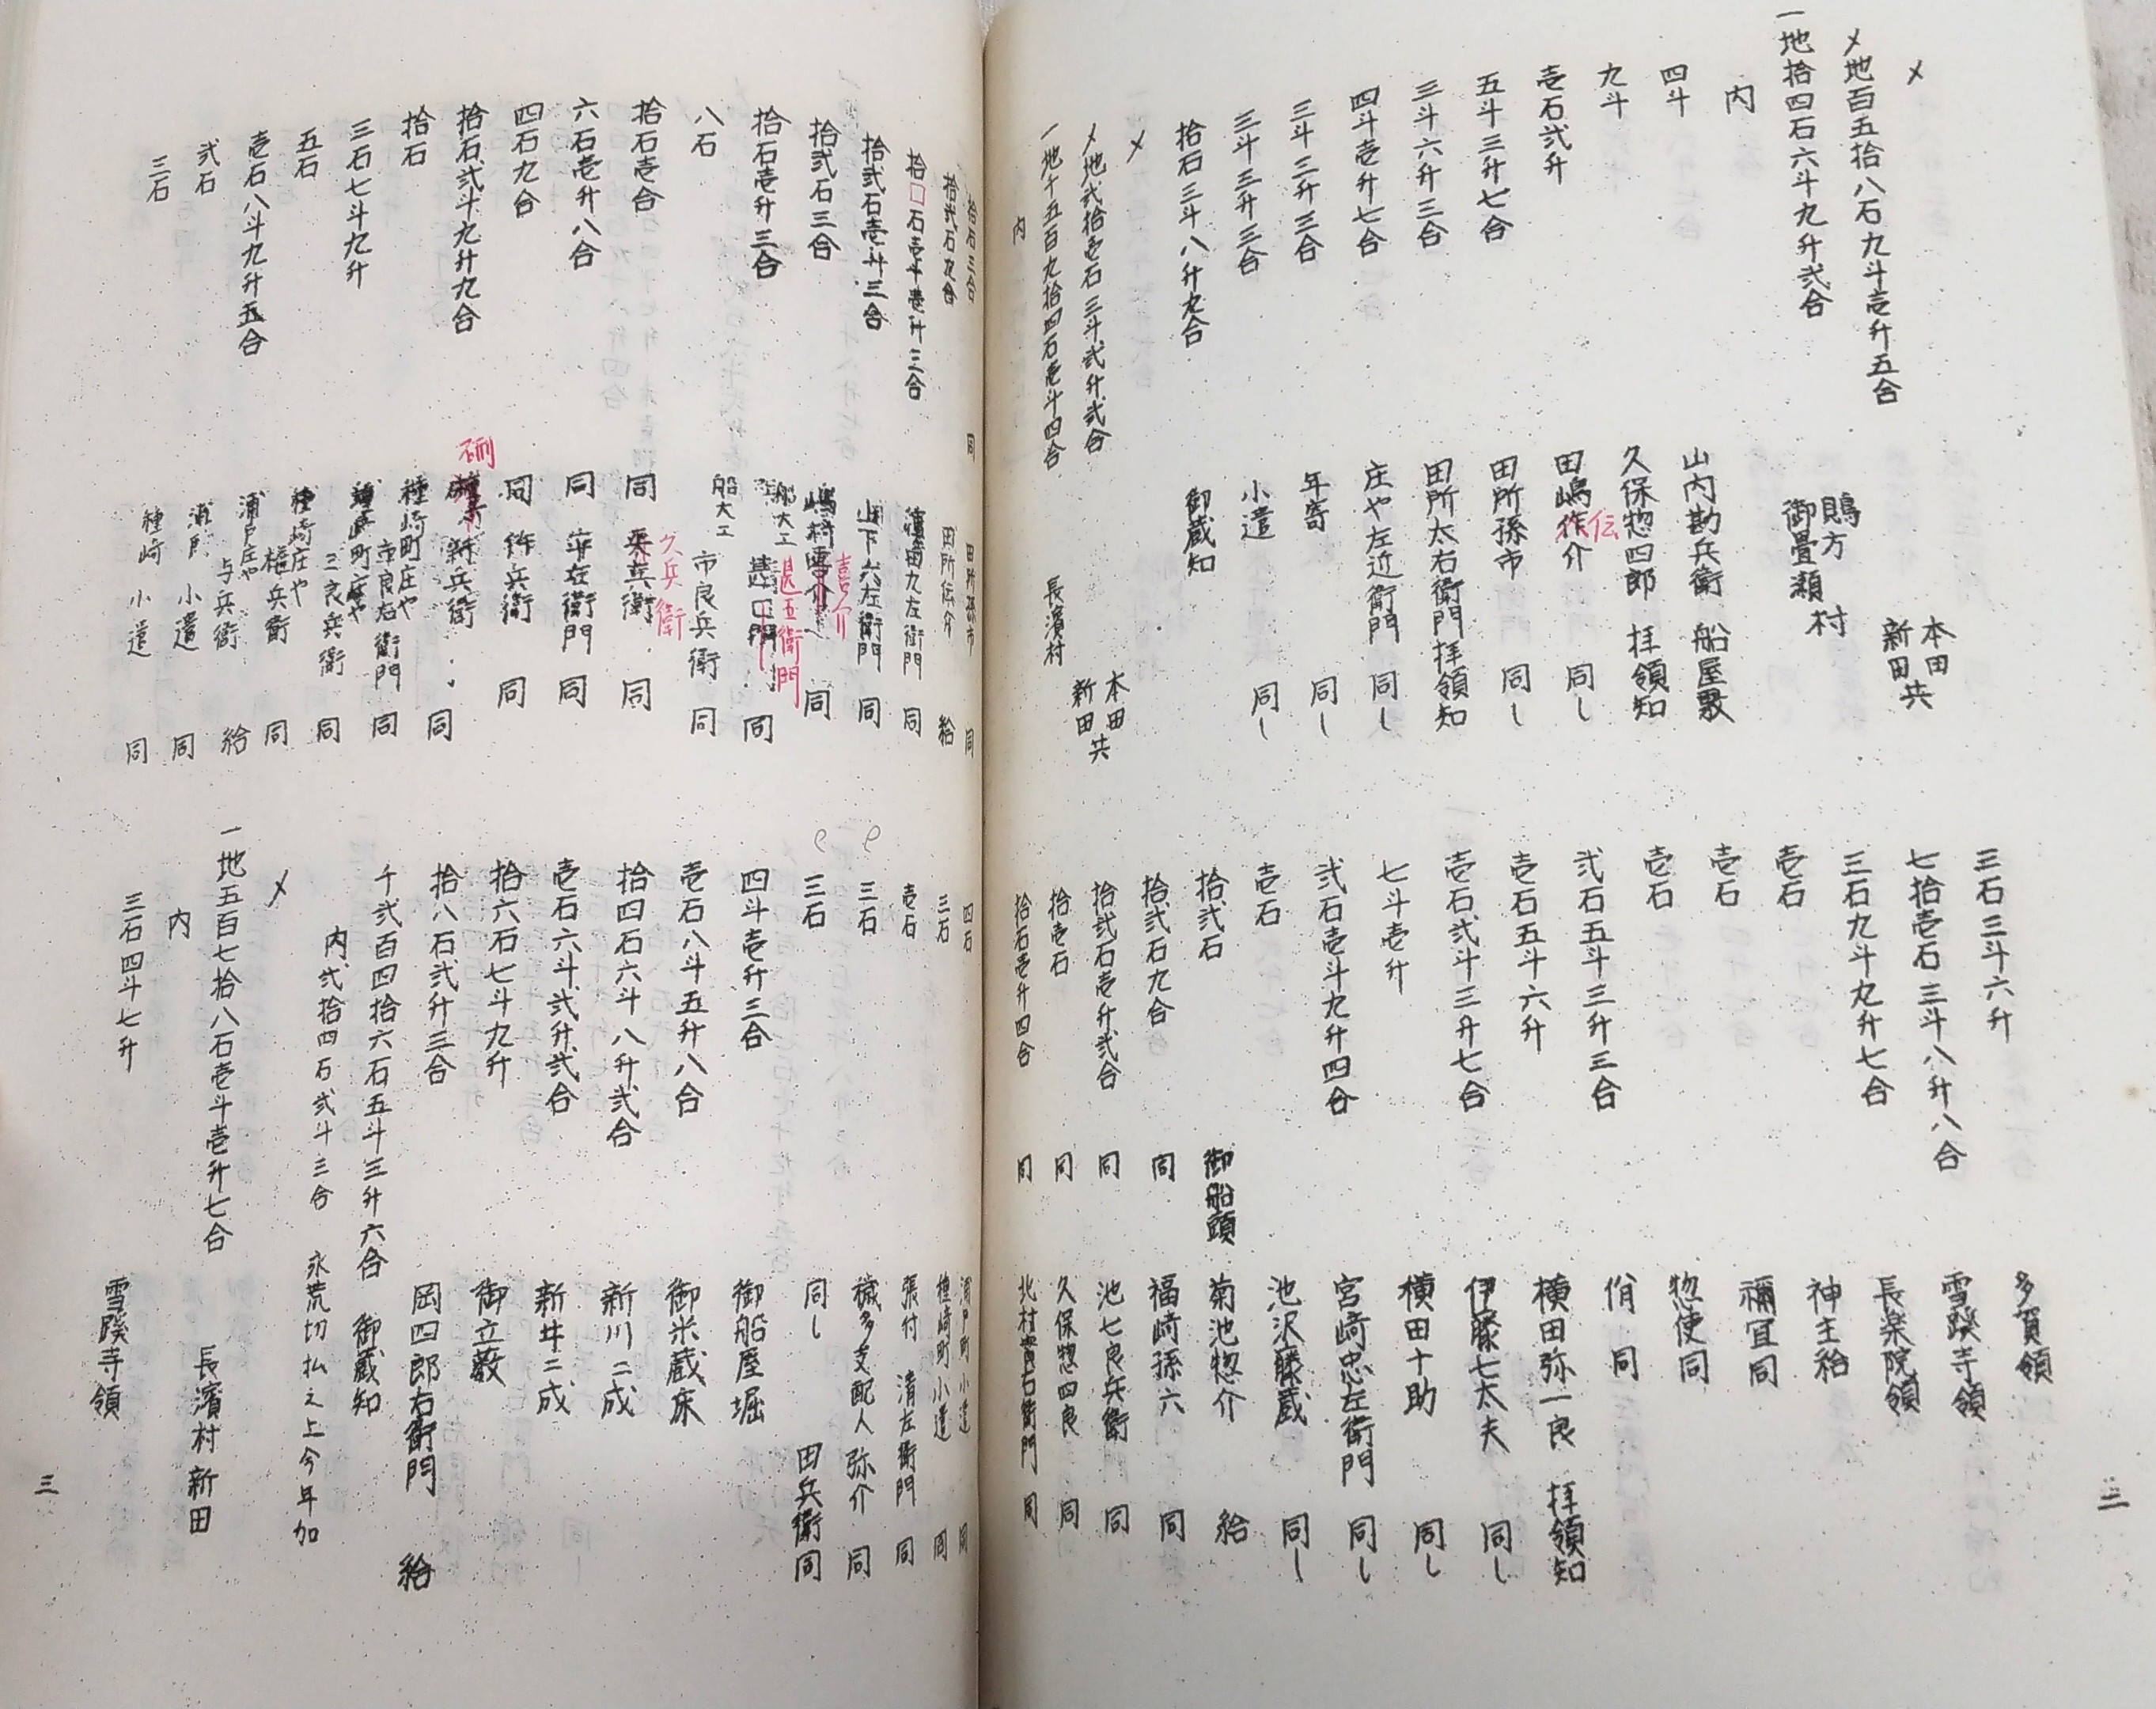 〆
〆地百五拾八石九斗壱升五合 本田新田共
一地拾四石六斗九升弐合 御畳瀬村
内
四斗 山内勘兵衛 船屋敷
九斗 久保惣四郎 拝領知
壱石弐升 田嶋作介 伝 同し
五斗三升七合 田所孫市 同し
三斗六升三合 田所太右衛門 拝領知
四斗壱升七合 庄や左近衛門 同し
三斗三升三合 年寄 同し
三斗三升三合 小遣 同し
拾石三斗八升九合 御蔵知
〆
〆地弐拾壱石三斗弐升弐合 本田新田共
一地千五百九拾四石壱斗四合 長濱村
内
三石三斗六升 多賀領
七拾壱石三斗八升八合 雪蹊寺領
三石九斗九升七合 長楽院領
壱石 神主給
壱石 禰宜同
壱石 惣使同
弐石五斗三升三合 佾 同
壱石五斗六升 横田弥一良 拝領知
壱石弐斗三升七合 伊藤七太夫 同し
七斗壱升 横田十助 同し
弐石壱斗九升四合 宮崎忠左衛門 同し
壱石 池沢藤蔵 同し
拾弐石 御船頭 菊池惣介 給
拾弐石九合 同 福崎孫六 同
拾弐石壱升弐合 同 池七良兵衛 同
拾壱石 同 久保惣四良 同
拾石壱升四合 同 北村 右衛門 同
三
拾石三合 同 田所孫市 同
拾弐石九合 田所伝介 給
拾□石壱斗壱升三合 濱田九左衛門 同
拾弐石壱升三合 山下六左衛門 同
拾弐石三合 嶋村 喜介 同
拾石壱升三合 船大工 五衛門 同
八石 船大工 市良兵衛 同
拾石壱合 同 久兵衛 同
六石壱升八合 同 平左衛門 同
四石九合 同 作兵衛 同
拾石弐斗九升九合 硎 新兵衛 同
拾石 種崎町庄や 市良右衛門 同
三石七斗九升 種崎町庄や 三良兵衛 同
五石 種崎庄や 権兵衛 同
壱石八斗九升五合 浦戸庄や 与兵衛 給
弐石 浦戸 小遣 同
三石 種崎 小遣 同
四石 浦戸町小遣 同
三石 種崎町小遣 同
壱石 張付 清左衛門 同
三石 穢多支配人 弥介 同
三石 同し 田兵衛 同
四斗壱升三合 御船屋堀
壱石八斗五升八合 御米蔵床
拾四石六斗八升弐合 新川ニ成
壱石六斗弐升弐合 新井ニ成
拾六石七斗九升 御立薮
拾八石弐升三合 岡四郎右衛門 給
千弐百四拾六石五斗三升六合 御蔵知
内弐拾四石弐斗三合 永荒切払之上今年加
〆
一地五百七拾八石壱斗壱升七合 長濱村 新田
内
三石四斗七升 雪蹊寺領
三